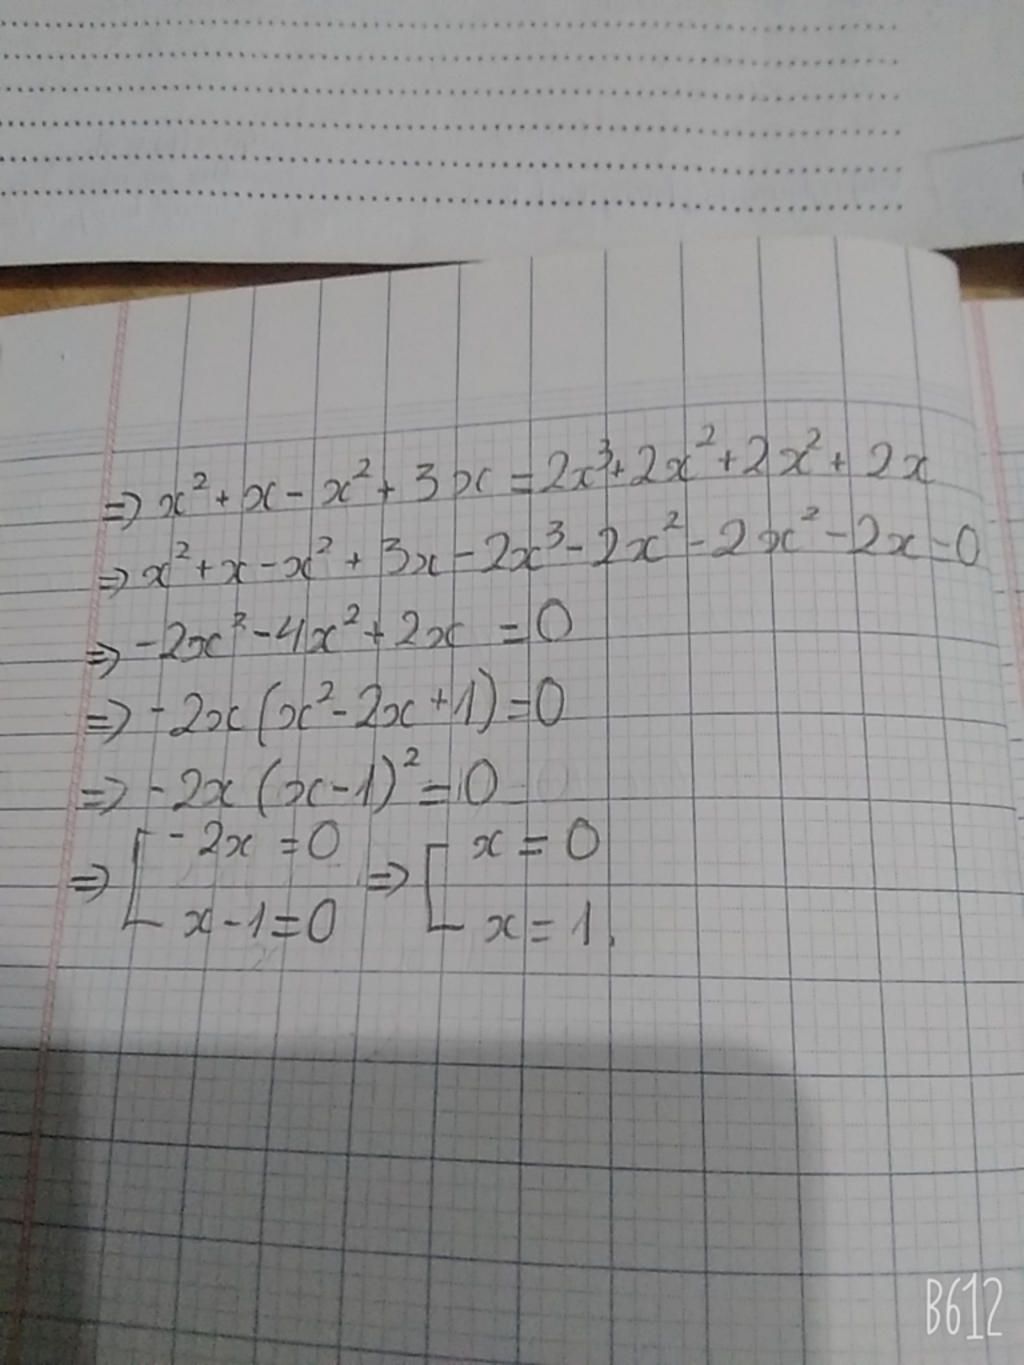 => x² + x - x² + 3x = 2x³ + 2x² + 2x² + 2x
=> x² + x - x² + 3x - 2x³ - 2x² - 2x² - 2x - 0
=> -2x³ - 4x² + 2x = 0
=> -2x (x² - 2x + 1) = 0
=> -2x (x - 1)² = 0
=> [ -2x = 0 => [ x = 0
x - 1 = 0 x = 1.
B612